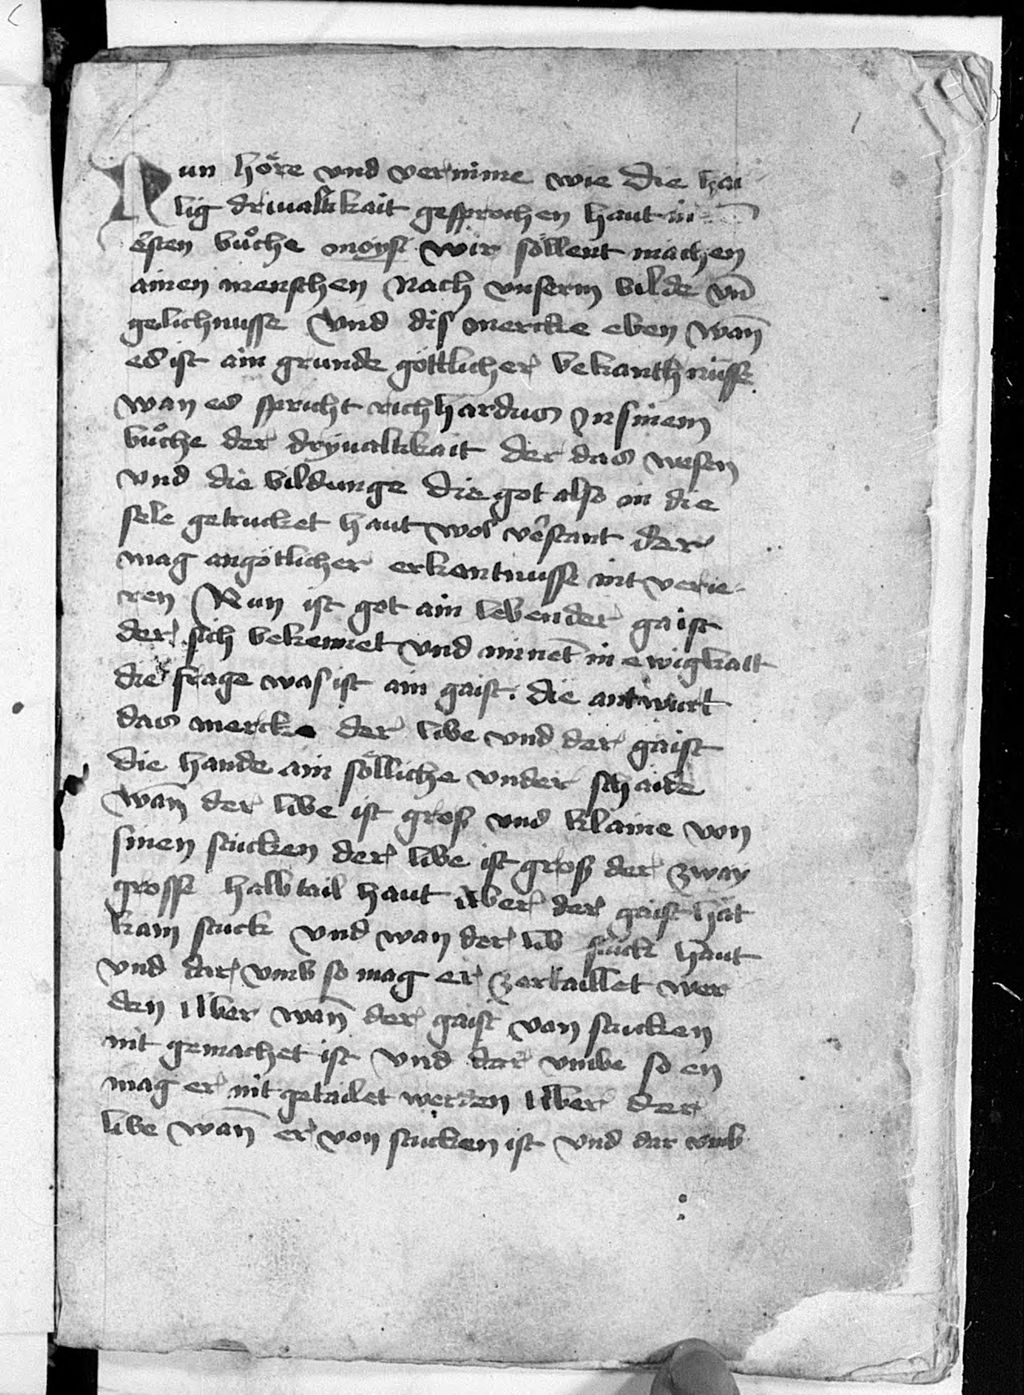 Nun höre vnd vernime wie die hai
lig driualtikait gesprochen haut in
ersten bůche moysi wir söllent machen
ainen menschen Nach vnserm bilde vn̄
gelichnusse Vnd dis mercke eben wan̄
es ist ain grunde göttlicher bekanthnusse
wan es spricht richhardus In sinem
bůche der dryualtikait der das wesen
vnd die bildunge die got also in die
sele getrucket haut wol v̄stant der
mag an götlicher erkantnusse nit verie-
ren Nun ist got ain lebender gaist
der sich bekennet vnd minnet in ewigkait
die frage was ist ain gaist. die antwurt
das mercke der libe vnd der gaist
die hande ain sölliche vnder schaide
wan̄ der libe ist groß vnd klaine von
sinen stucken der libe ist groß der zway
grosse halbtail haut Aber der gaist hat
kain stuck Vnd wan der lib stuck haut
vnd dar vmb so mag er zertaillet wer
den Aber wan̄ der gaist von stucken
nit gemachet ist Vnd dar vmbe so en
mag er nit getailet werden Aber der
libe wan̄ er von stucken ist Vnd dar vmb